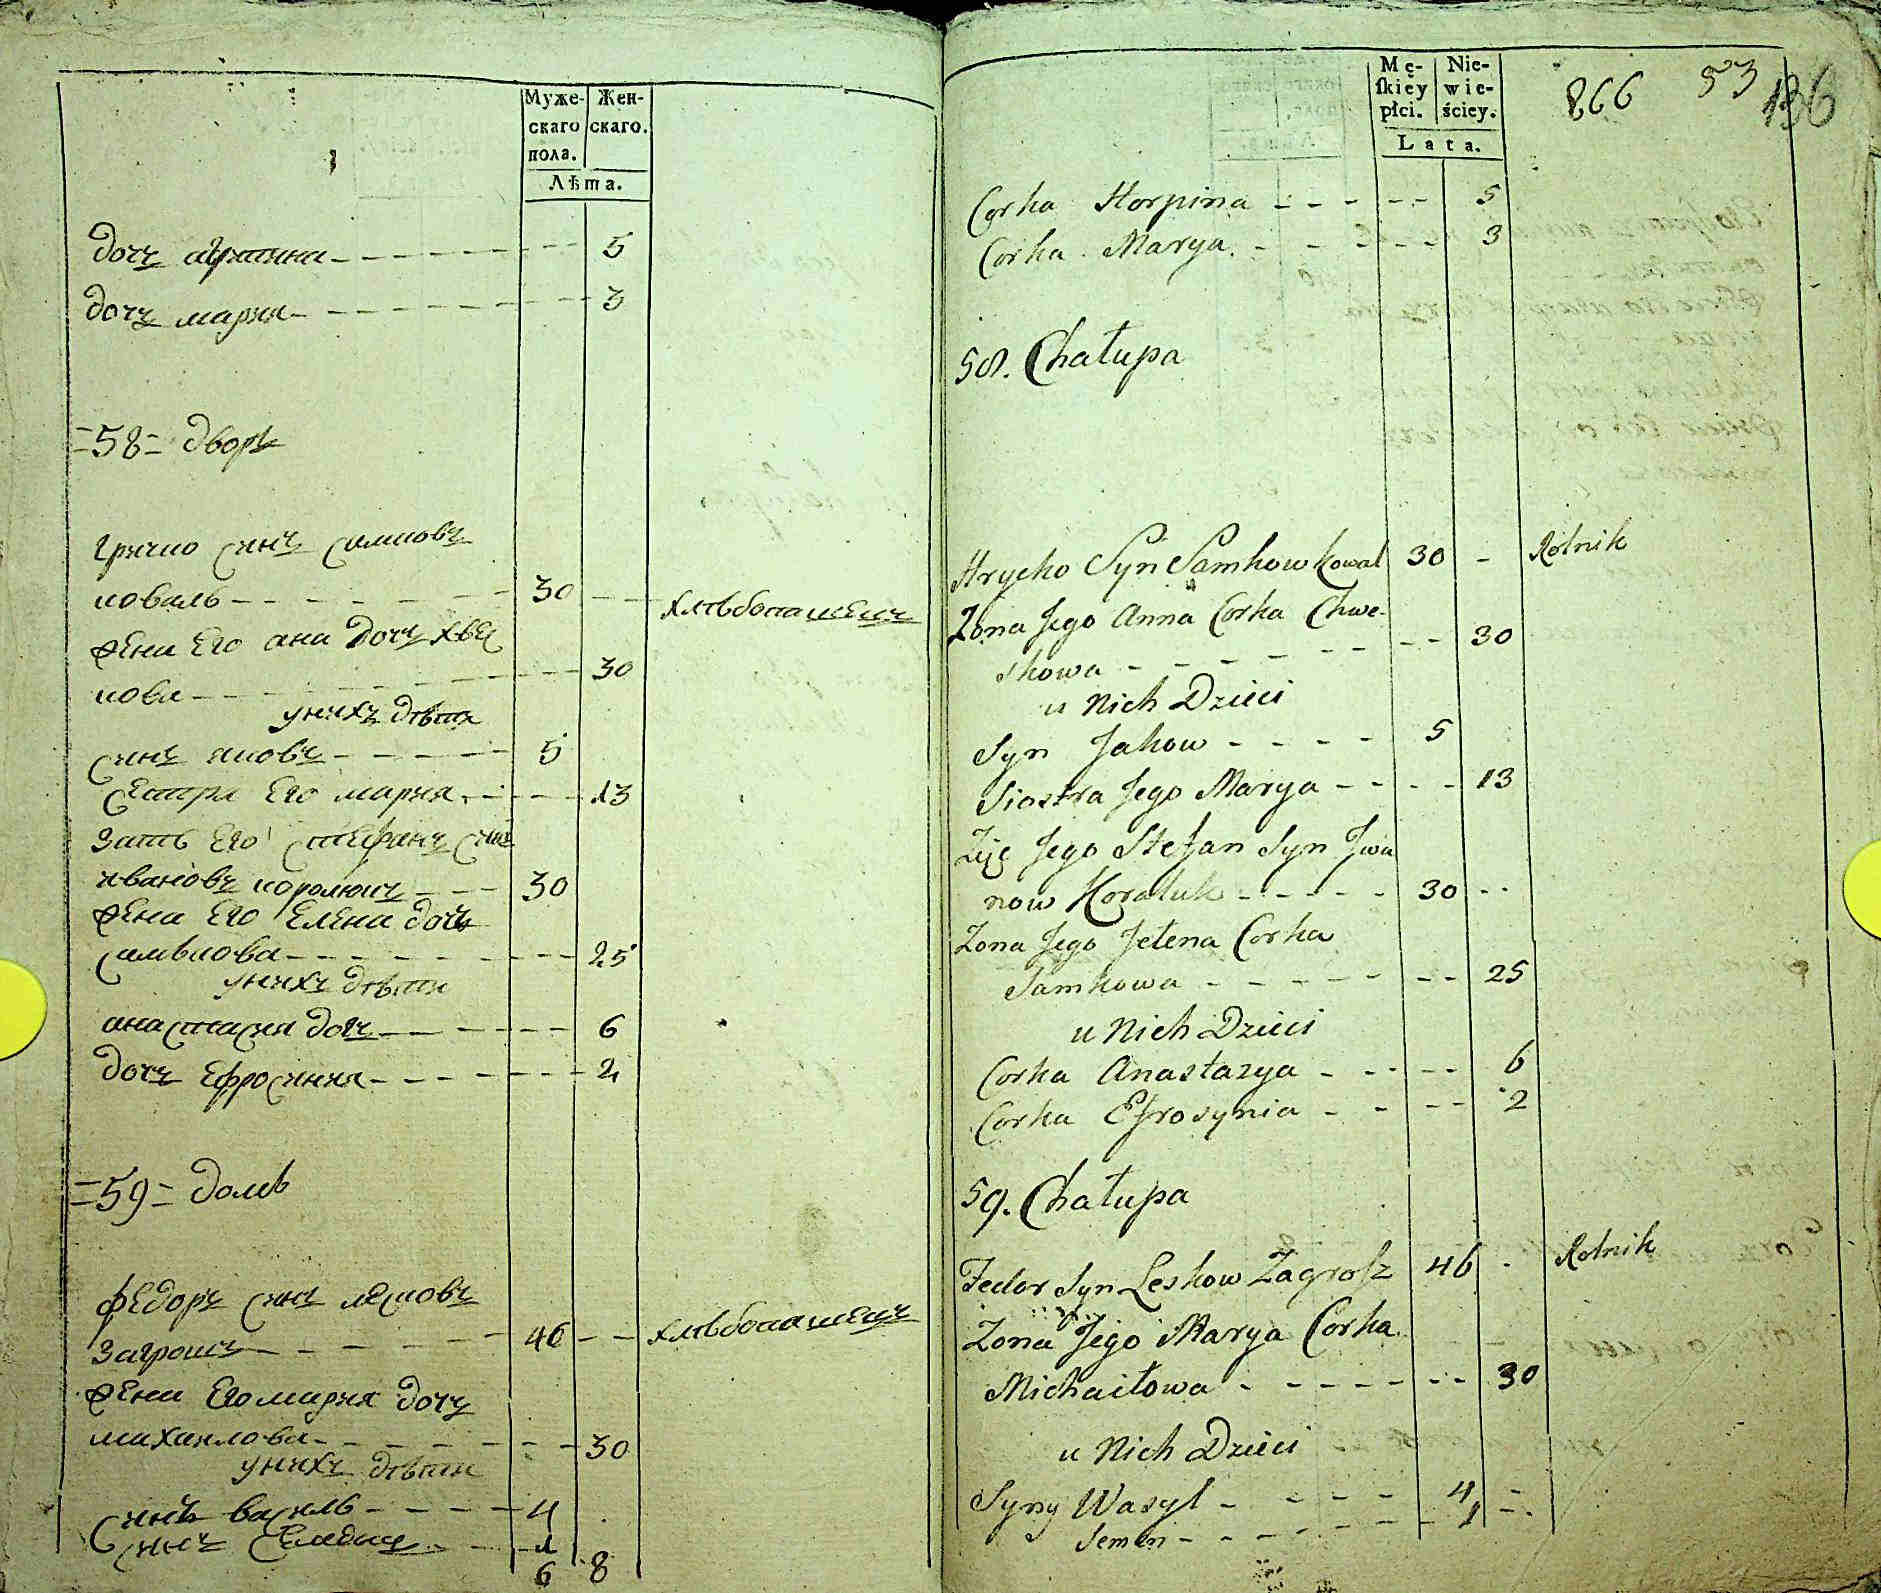 Муже-
скаго
пола.
Жен-
скаго.
Лѣта.
дочъ 5
дочъ мария 3
=58= дворъ
грицко синъ самковъ
коваль 30 хлѣбопашецъ
жена Его ана дочъ хвес
кова 30
унихъ дѣти
синъ яковъ 5
сестра Его мария 13
зать Его стефанъ синъ
ивановъ королюкъ 30
жена Его Елена дочъ
самькова 25
унихъ дѣти
анастасия дочъ 6
дочъ Ефросиния 2
=59= домъ
федоръ синъ лесковъ
загрошъ 46 хлѣбопашецъ
жена Его мария дочъ
михаилова 30
унихъ дѣти
синъ василь 4
синъ 1
6 8
Mę-
skiey
płci.
Nie-
wie-
ściey.
Lata.
866 53 136
Corka Horpina 5
Corka Marya 3
58. Chałupa
Hrycko Syn Samkow Kowal 30 - Rolnik
Zona Jego Anna Corka Chwe-
skowa 30
u Nich Dzieci
Syn Jakow 5
Siostra Jego Marya 13
Zięć Jego Stefan Syn Jwa
now Koraluk 30
Zona Jego Jelena Corka
Samkowa 25
u Nich Dzieci
Corka Anastazya 6
Corka Efrosynia 2
59. Chałupa
Fedor Syn Leskow Zagrosz 46 - Rolnik
Zona Jego Marya Corka
Michaiłowa 30
u Nich Dzieci
Syny Wasyl 4
Semen 1